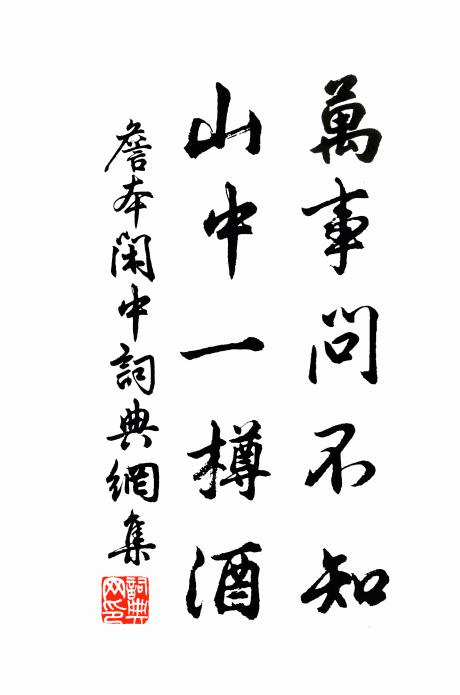 萬事問不知
山中一樽酒
詹本閑中詞典網集
詞典